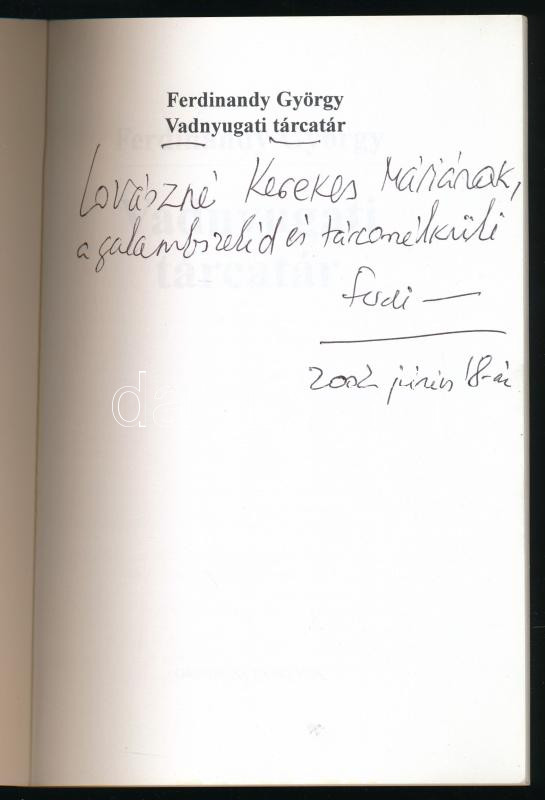 Ferdinandy György
Vadnyugati tárcatár
Lovászné Kerekes Máriának,
a galambszelíd és tárcanélküli
Ferdi
2002 június 18-án